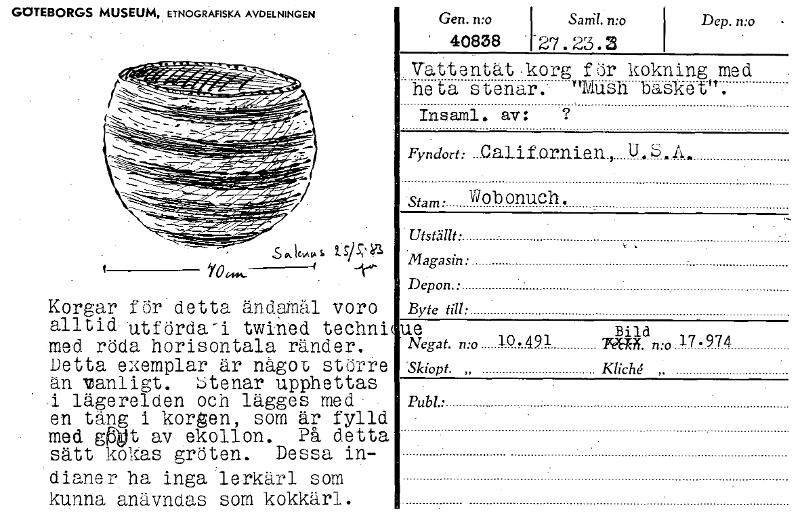 GÖTEBORGS MUSEUM, ETNOGRAFISKA AVDELNINGEN
Saknas 25/5-83
40cm
Korgar för detta ändamål voro
alltid utförda i twined technique
med röda horisontala ränder.
Detta exemplar är något större
än vanligt. Stenar upphettas
i lägerelden och lägges med
en tång i korgen, som är fylld
med gröt av ekollon. På detta
sätt kokas gröten. Dessa in-
dianer ha inga lerkärl som
kunna anävndas som kokkärl.
Gen. n:o Saml. n:o Dep. n:o
40838 27.23.3
Vattentät korg för kokning med
heta stenar. "Mush basket".
Insaml. av: ?
Fyndort: Californien, U.S.A.
Stam: Wobonuch.
Utställt:
Magasin:
Depon.:
Byte till:
Bild
Negat. n:o 10.491 n:o 17.974
Skiopt. „ Kliché „
Publ.: